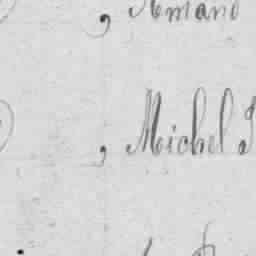 , Armand
, Michel